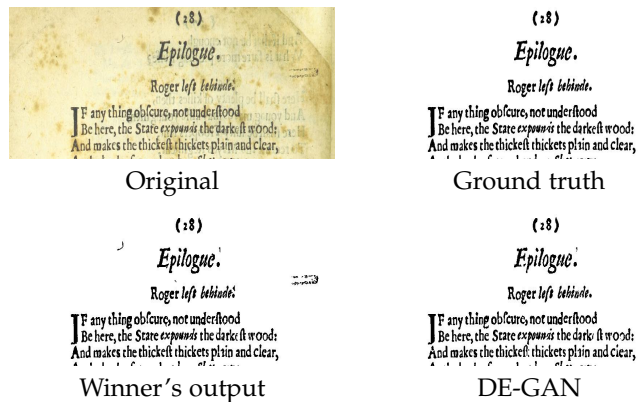 (28)
Epilogue.
Roger left behinde.
IF any thing obſcure, not underſtood
Be here, the Stare expounds the darkeſt wood:
And makes the thickeſt thickets plain and clear,
Original
(28)
Epilogue.
Roger left behinde.
IF any thing obſcure, not underſtood
Be here, the Stare expounds the darkeſt wood:
And makes the thickeſt thickets plain and clear,
Ground truth
(28)
Epilogue.
Roger left behinde.
IF any thing obſcure, not underſtood
Be here, the Stare expounds the darkeſt wood:
And makes the thickeſt thickets plain and clear,
Winner's output
(28)
Epilogue.
Roger left behinde.
IF any thing obſcure, not underſtood
Be here, the Stare expounds the darkeſt wood:
And makes the thickeſt thickets plain and clear,
DE-GAN